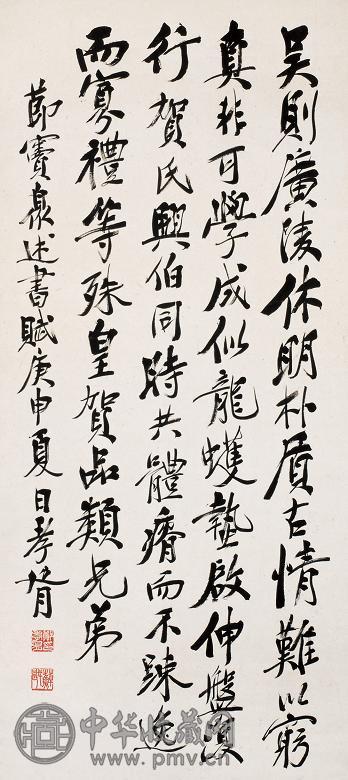 吳則廣陵休明朴質古情難以窮
真非可學成似龍蠖蟄啟伸盤復
行賀氏興伯同時共體瘠而不踈逸
而寡禮等殊皇賀品類兄弟
節竇臮述書賦庚申夏日孝胥
中华收藏网
www.pmv.cn